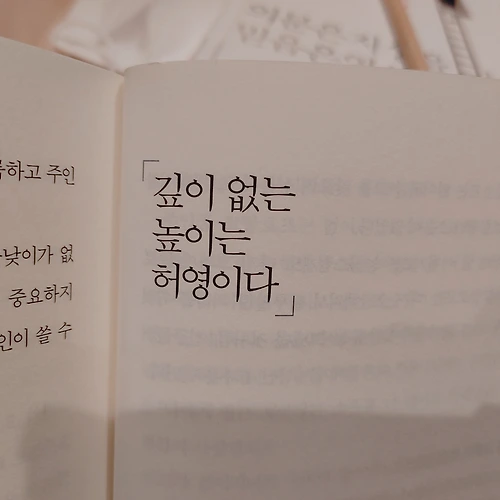 하고 주인
낮이가 없
중요하지
인이 쓸 수
「깊이 없는
높이는
허영이다」